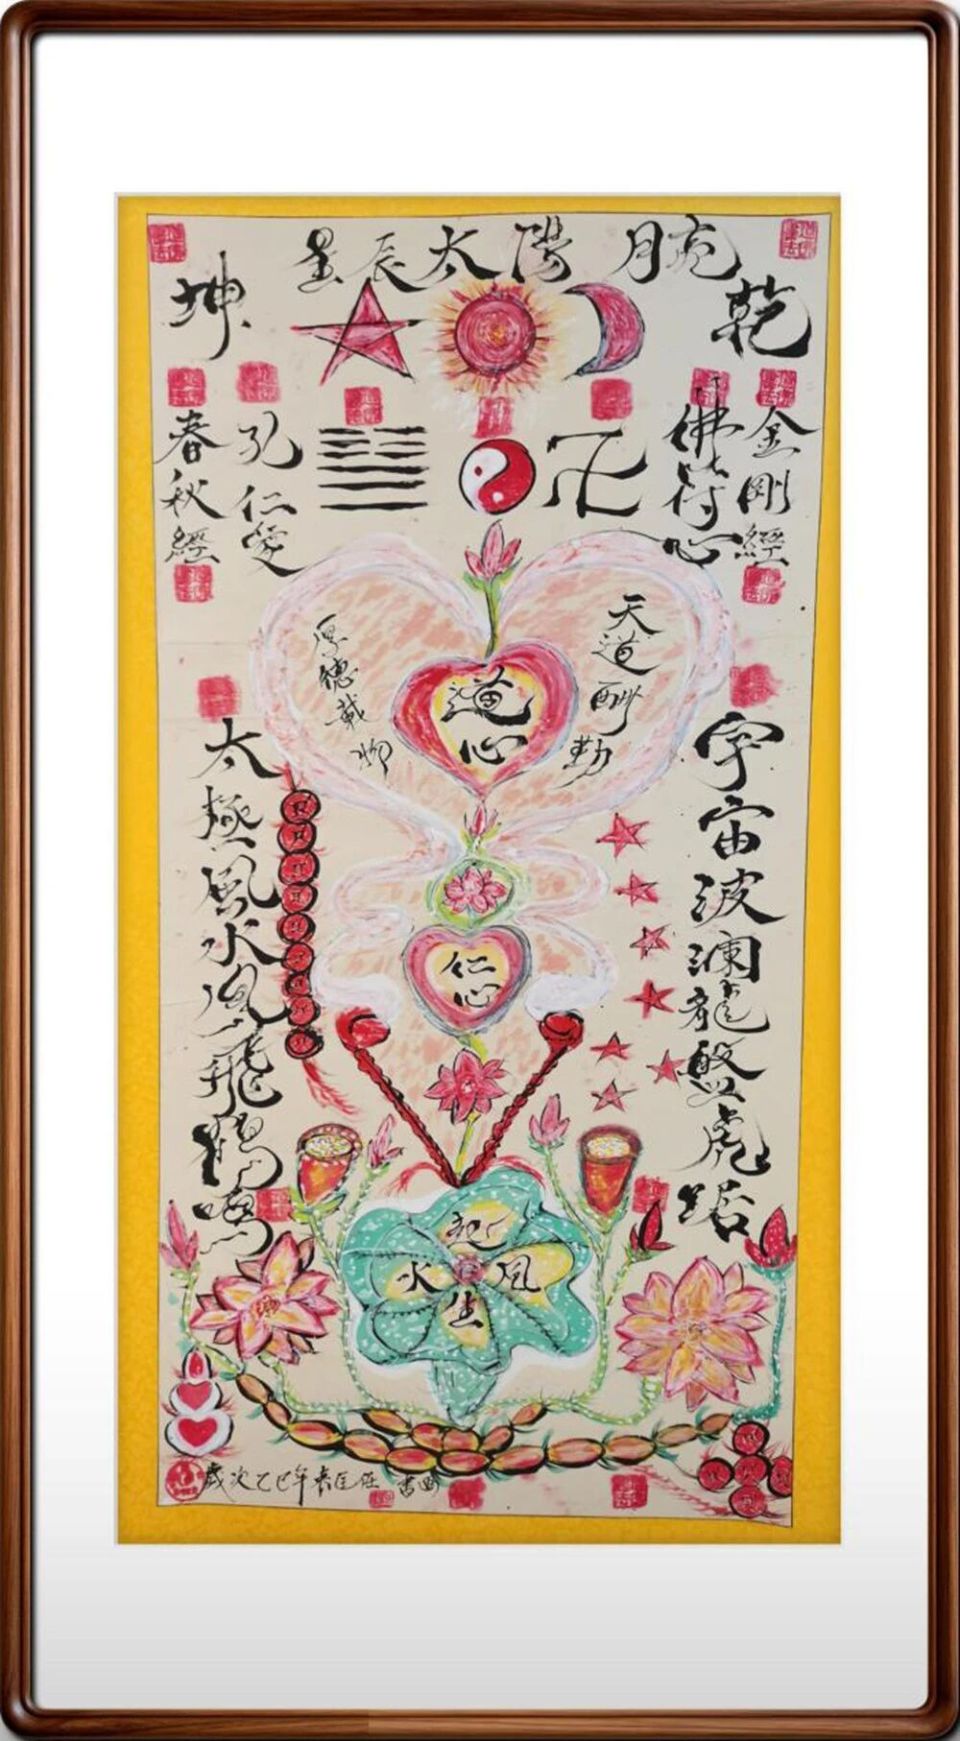 星辰太陽月亮
乾
坤
金剛經
佛符心
孔仁愛
春秋經
卍
天道酬勤
厚德載物
道心
仁心
宇宙波澜龍盤虎踞
太極風水鳳飛鶴鳴
起
水 風
生
歲次乙巳年春 書画